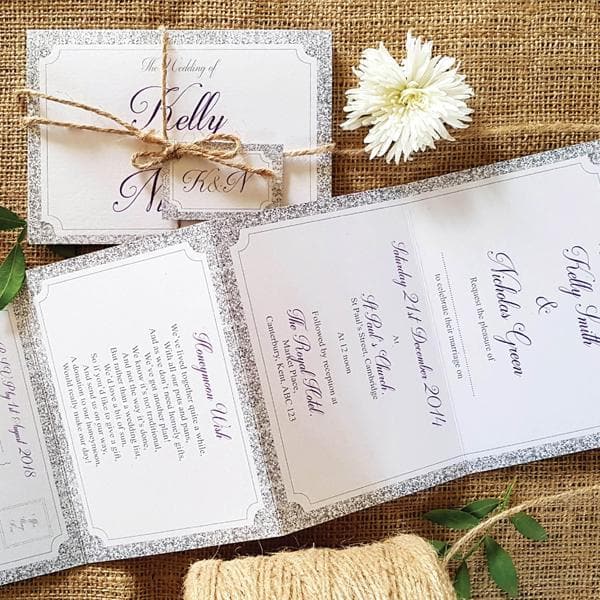 The Wedding of
Kelly
N
K&N
Kelly Smith
&
Nicholas Green
Request the pleasure of
to celebrate their marriage on
Saturday 21st December 2014
At
St Paul's Church,
St Paul's Street, Cambridge
At 12 noon
Followed by reception at
The Royal Hotel,
Market Place,
Canterbury, Kent, ABC 123
Honeymoon Wish
We've lived together quite a while,
With all our pots and pans,
And as we don't need homely gifts,
We've got another plan!
We know it's not traditional,
And not the way it's done,
But rather than a wedding list,
We'd love a bit of sun.
So if you'd like to give a gift,
And send us on our way,
A donation to our honeymoon,
Would really make our day!
By 1st August 2018